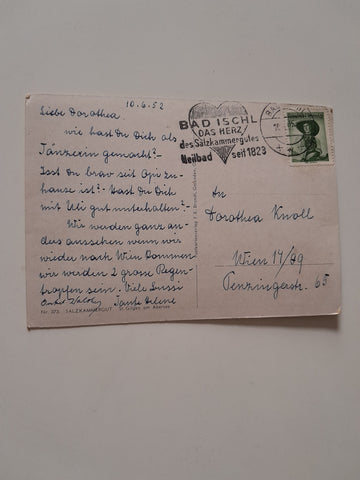 10.6.52
Liebe Dorothea
wie hast du Dich als
Tänzerin gemacht?-
Isst du brav seit Opi zu-
hause ist?- Hast du Dich
mit Uli gut unterhalten?-
Wir werden ganz an-
ders aussehen wenn wir
wieder nach Wien kommen
wir werden 2 grosse Regen-
tropfen sein. Viele Bussi
Tante Helene
Nr. 373 SALZKAMMERGUT. St. Gilgen am Abersee
BAD ISCHL
DAS HERZ
des Salzkammergutes
Heilbad seit 1823
An
Dorothea Knoll
Wien 17/89
Penzingerstr. 65